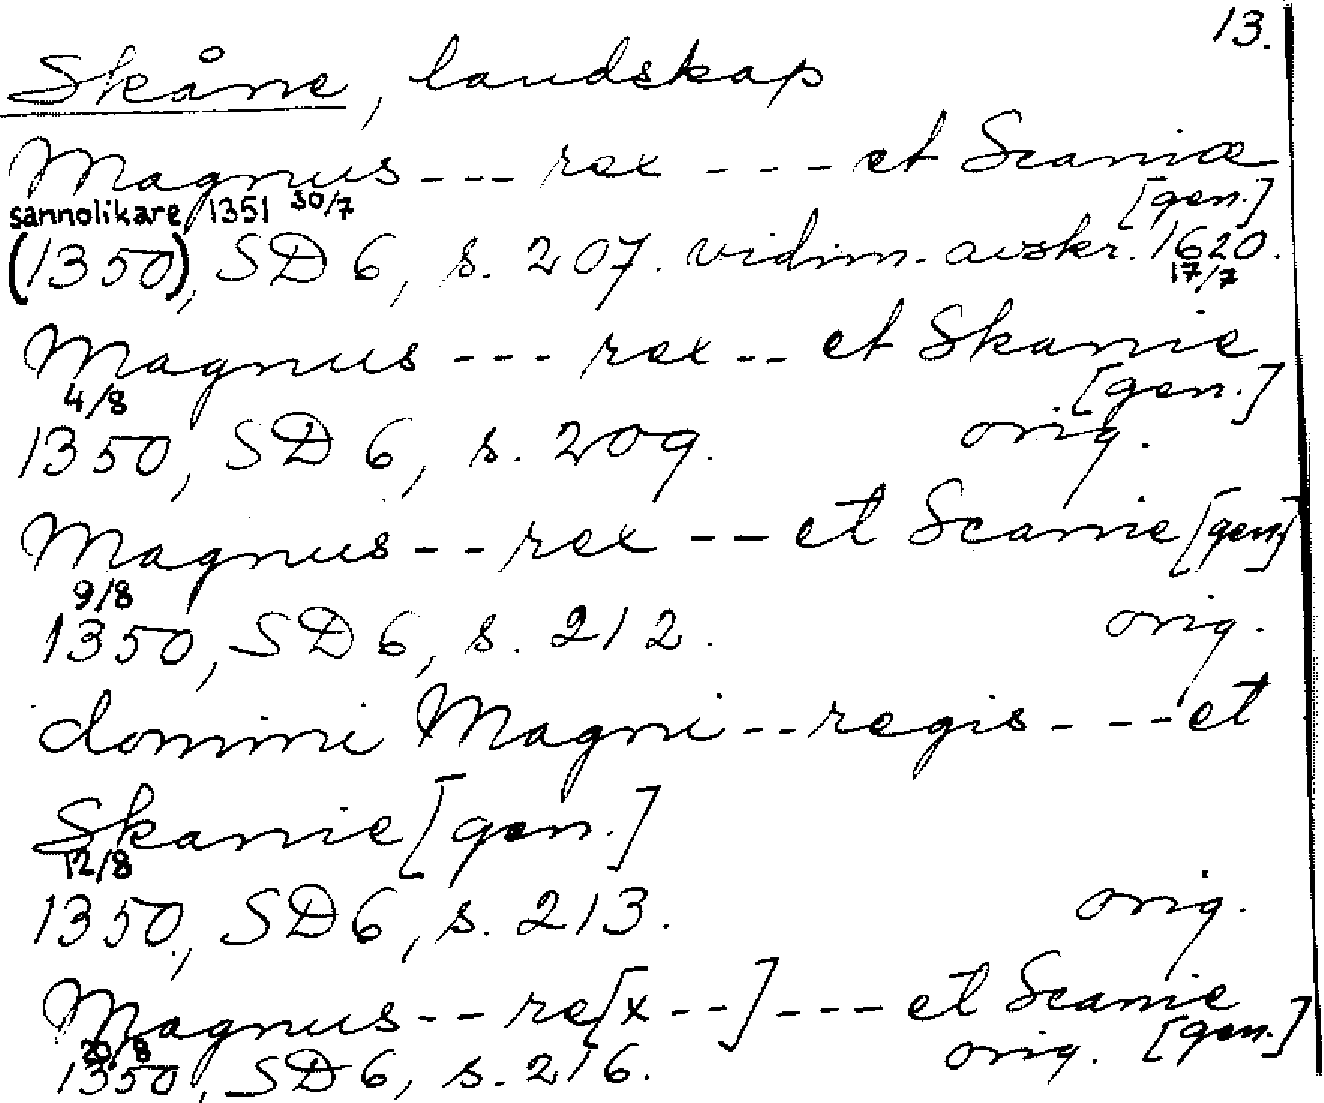 13.
Skåne, landskap
Magnus --- rex --- et Scaniæ
[gen.]
sannolikare 1351 30/7
(1350), SD 6, s. 207. vidim. avskr. 1620.
17/7
Magnus --- rex -- et Skanie
[gen.]
4/8
1350, SD 6, s. 209. orig.
Magnus -- rex -- et Scanie [gen]
9/8
1350, SD 6, s. 212. orig.
domini Magni -- regis --- et
Skanie [gen.]
12/8
1350, SD 6, s. 213. orig.
Magnus -- re[x --] --- et Scanie
[gen.]
20/8
1350, SD 6, s. 216. orig.